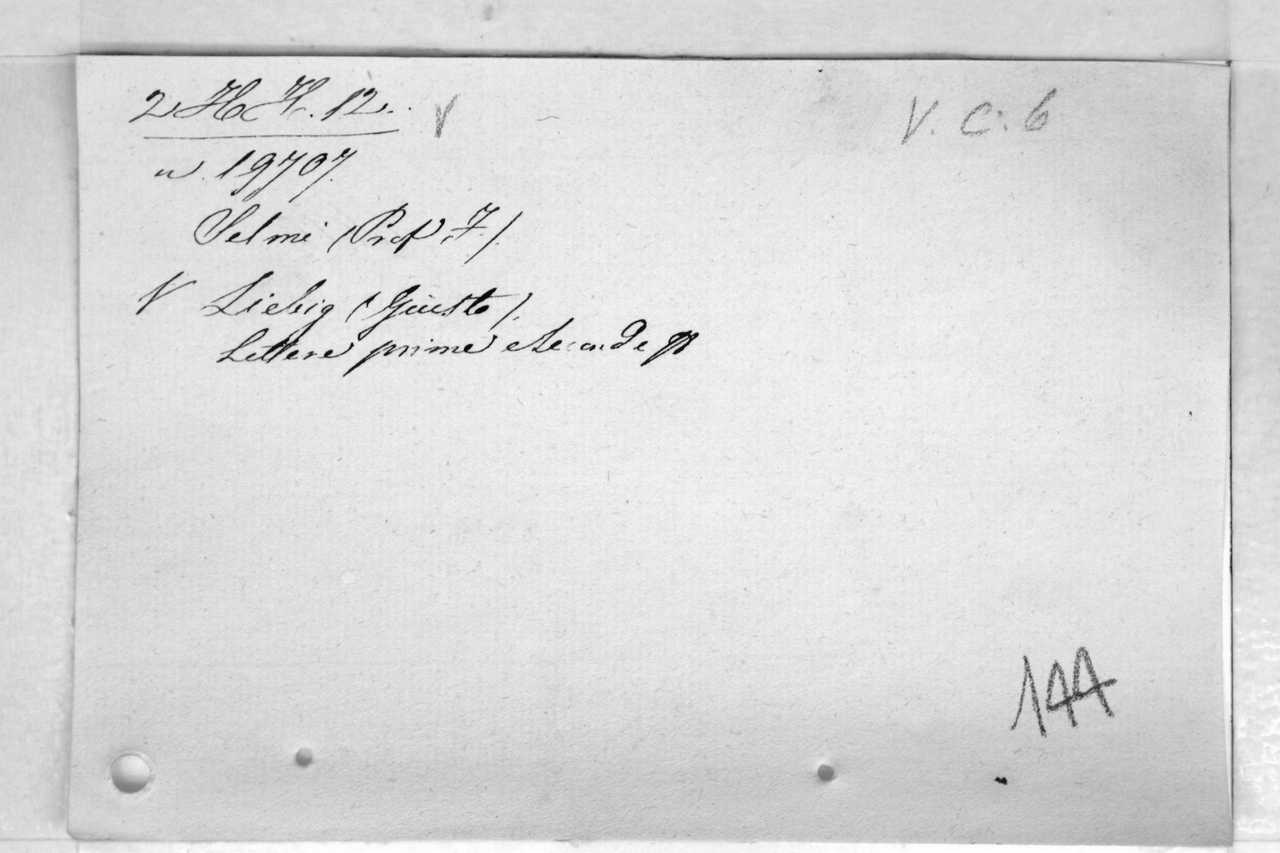 2 H H. 12. V
V. C. 6
n. 19707.
Selmi (Prof. F.)
V Liebig (Giusto).
Lettere prime e seconde
144